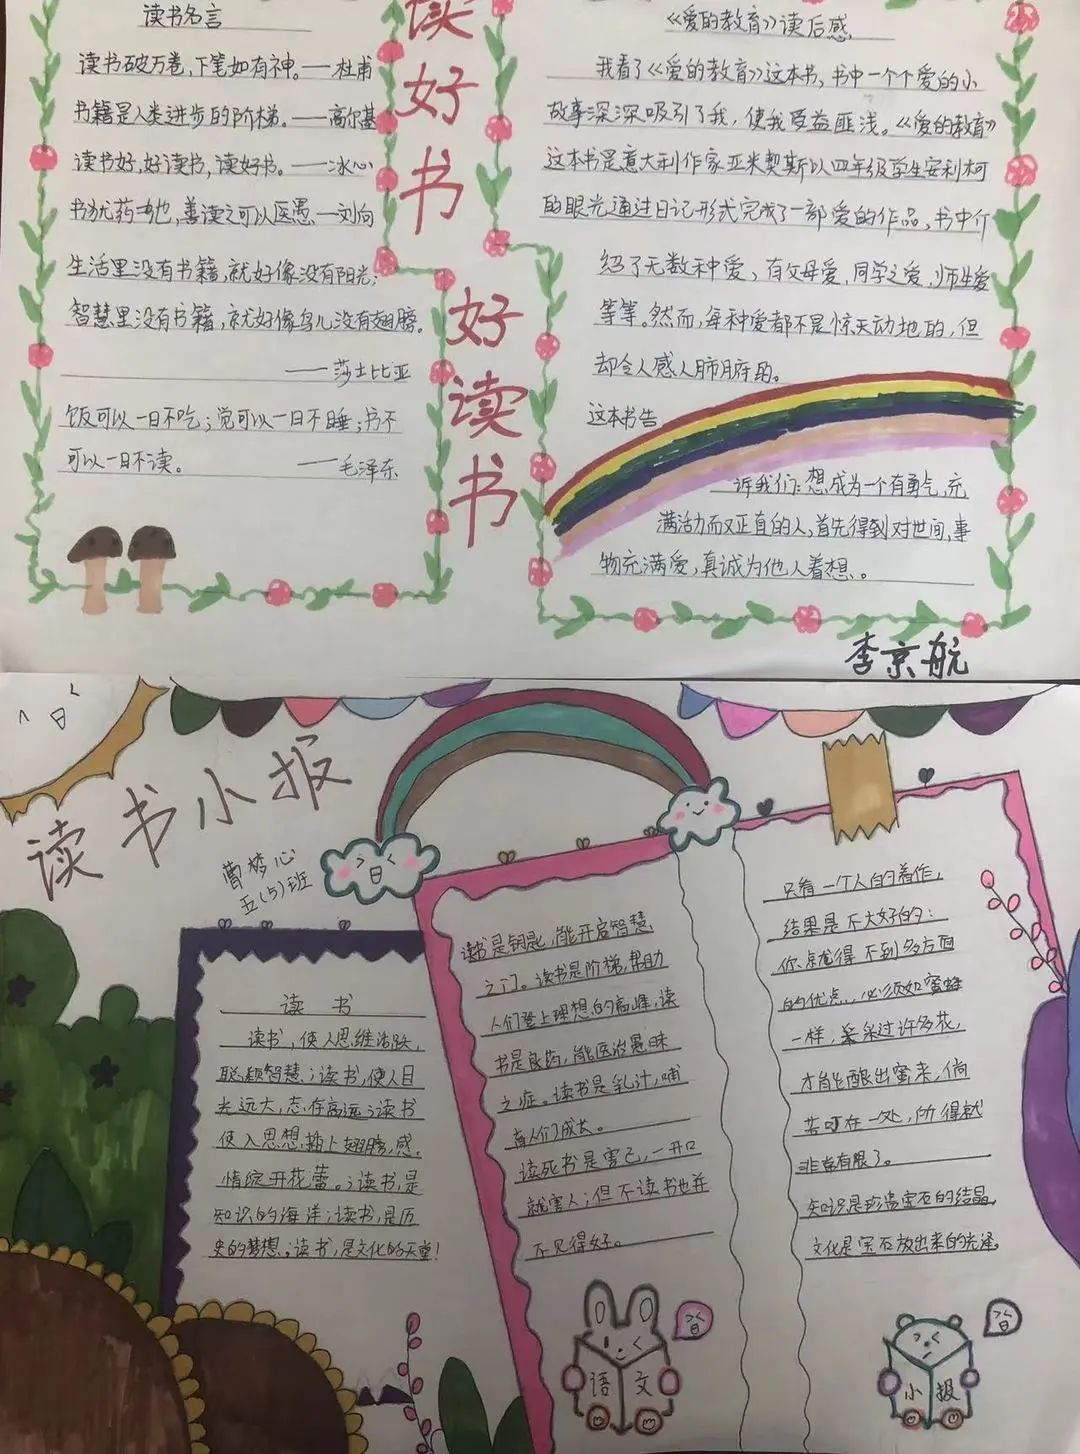 读书名言
读书破万卷,下笔如有神。——杜甫
书籍是人类进步的阶梯。——高尔基
读书好,好读书,读好书。——冰心
书犹药也,善读之可以医愚.—刘向
生活里没有书籍,就好像没有阳光;
智慧里没有书籍,就好像鸟儿没有翅膀。
——莎士比亚
饭可以一日不吃;觉可以一日不睡;书不
可以一日不读。 ——毛泽东
读
好
书
好
读
书
《爱的教育》读后感
我看了《爱的教育》这本书,书中一个个爱的小
故事深深吸引了我,使我受益匪浅。《爱的教育》
这本书是意大利作家亚米契斯以四年级学生安利柯
的眼光通过日记形式完成了一部爱的作品,书中介
绍了无数种爱,有父母爱,同学之爱,师生爱
等等。然而,每种爱都不是惊天动地的,但
却令人感人肺腑的。
这本书告
诉我们:想成为一个有勇气,充
满活力而又正直的人,首先得到对世间,事
物充满爱,真诚为他人着想.。
李京航
读书小报
曹梦心
五(5)班
读 书
读书,使人思维活跃,
聪颖智慧;读书,使人目
光远大,志存高远;读书
使人思想插上翅膀,感
情绽开花蕾。;读书,是
知识的海洋;读书,是历
史的梦想;读书,是文化的天堂!
读书是钥匙,能开启智慧
之门。读书是阶梯,帮助
人们登上理想的高峰,读
书是良药,能医治愚昧
之症。读书是乳汁,哺
育人们成长。
读死书是害己,一开口
就害人;但不读书也并
不见得好。
只看一个人的著作,
结果是不大好的:
你就得不到多方面
的优点..,必须如蜜蜂
一样,采过许多花,
才能酿出蜜来,倘
若叮在一处,所得就
非常有限了。
知识是珍贵宝石的结晶,
文化是宝石放出来的光泽。
语文
小报